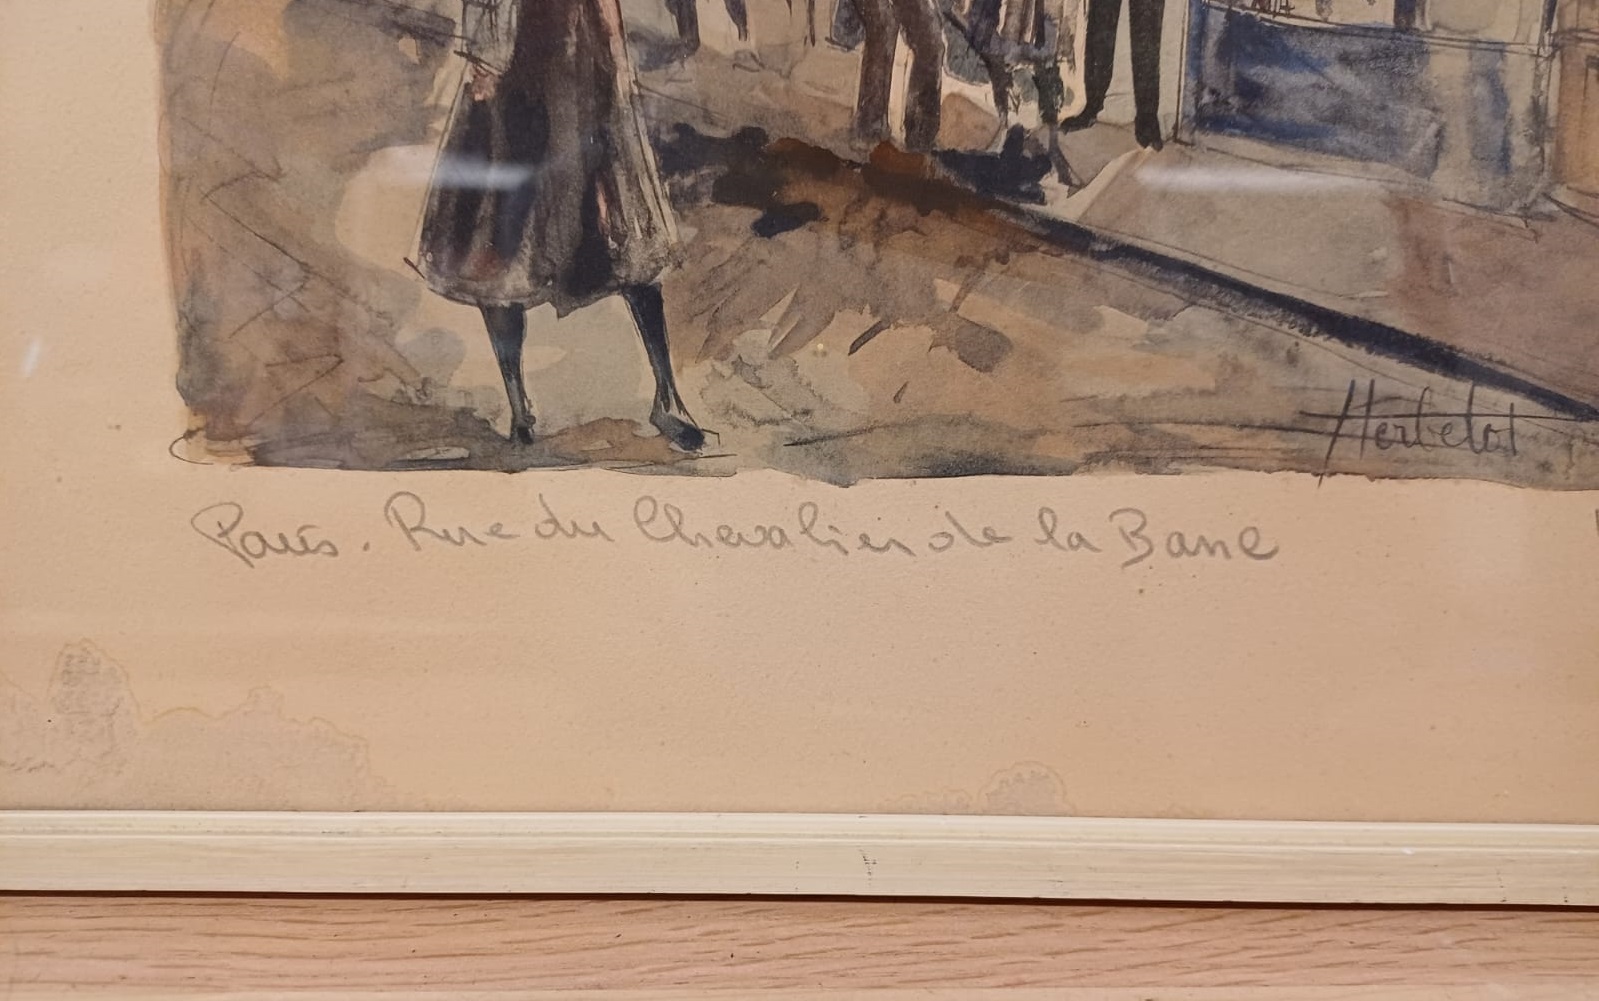 Herbelot
Paris. Rue du Chevalier de la Barre